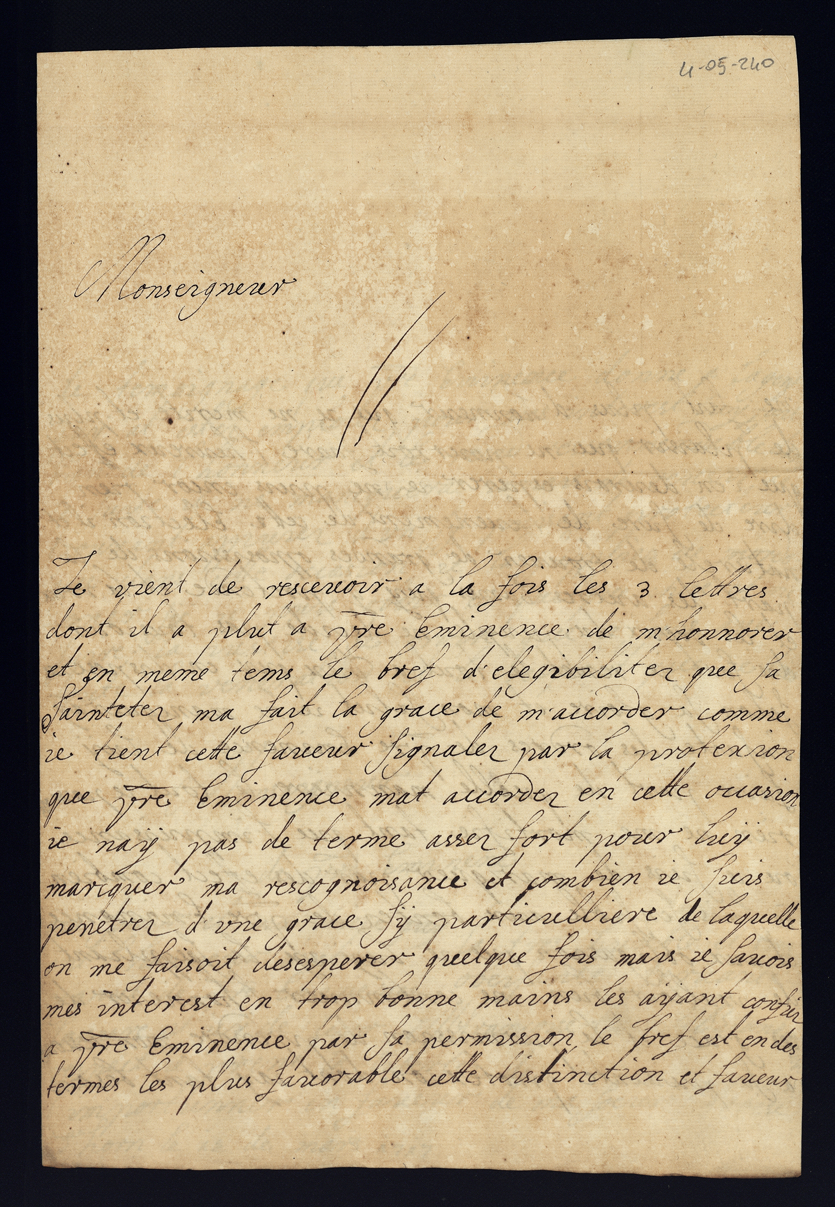 4-05-240
Monseigneur
Ie vient de rescevoir a la fois les 3 lettres
dont il a plut a vre Eminence de m'honnorer
et en meme tems le bref d'elegibilitez que sa
sainteter ma fait la grace de m'accorder comme
ie tient cette faveur signalez par la protexion
que vre Eminence mat accordez en cette occasion
ie naÿ pas de terme assez fort pour luÿ
marcquer ma rescognoisance et combien ie suis
penetrez d'vne grace sÿ particulliere de laquelle
on me faisoit desesperer quelque fois mais ie savois
mes interest en trop bonne mains les aÿant confiez
a vre Eminence par sa permission, le bref est en des
termes les plus favorable cette distinction et faveur